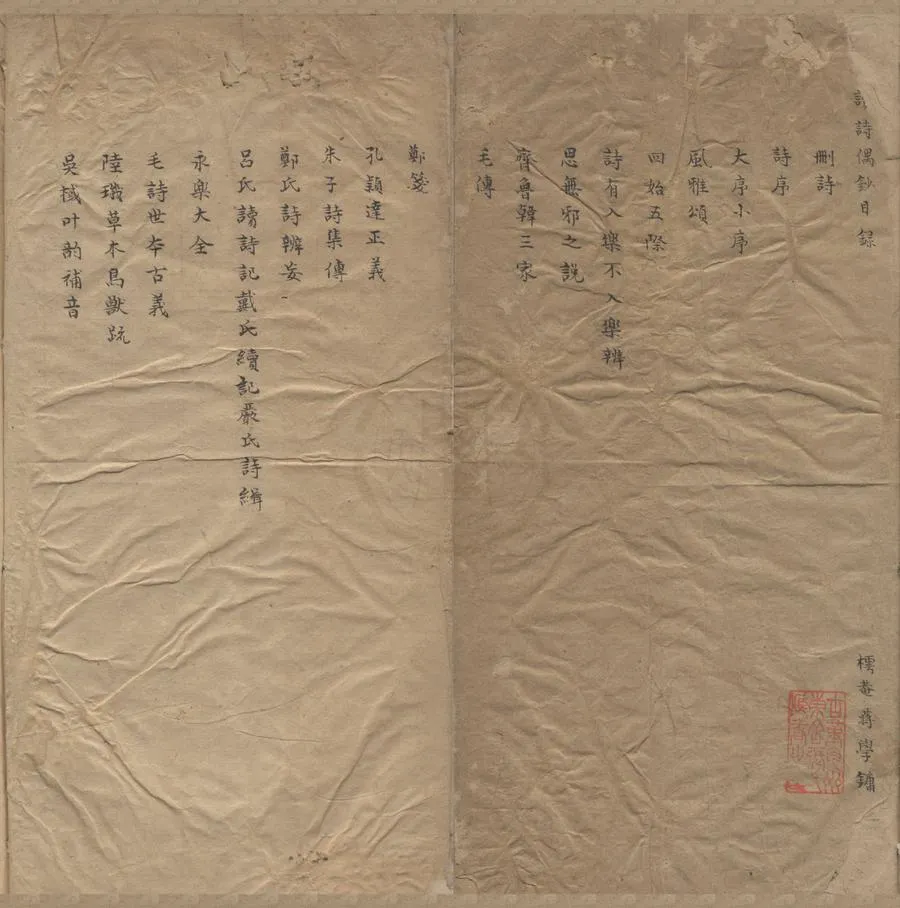 詩偶鈔目錄
樗菴蔣學鏞
刪詩
詩序
大序小序
風雅頌
四始五際
詩有入樂不入樂辨
思無邪之說
齊魯韓三家
毛傳
鄭箋
孔穎達正義
朱子詩集傳
鄭氏詩辨妄
呂氏讀詩記戴氏續記嚴氏詩緝
永樂大全
毛詩世夲古義
陸璣草木鳥獸疏
吳棫叶韵補音